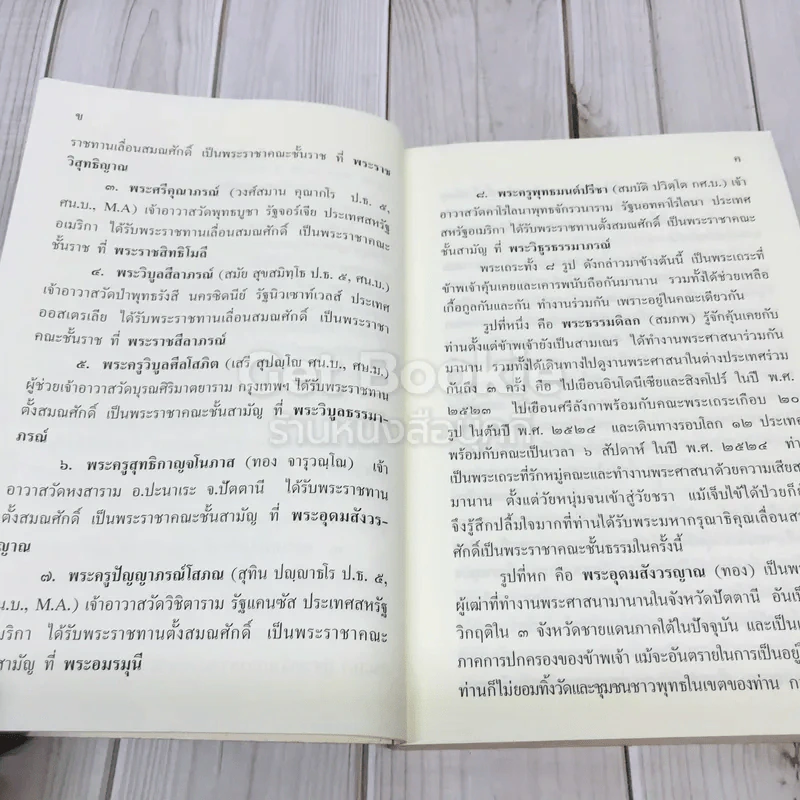 ข
ราชทานเลื่อนสมณศักดิ์ เป็นพระราชาคณะชั้นราช ที่ พระราช
วิสุทธิญาณ
๓. พระศรีคุณาภรณ์ (วงศ์สมาน คุณากโร ป.ธ. ๕,
ศน.บ., M.A) เจ้าอาวาสวัดพุทธบูชา รัฐจอร์เจีย ประเทศสหรัฐ
อเมริกา ได้รับพระราชทานเลื่อนสมณศักดิ์ เป็นพระราชาคณะ
ชั้นราช ที่ พระราชสิทธิโมลี
๔. พระวิบูลสีลาภรณ์ (สมัย สุขสมิทฺโธ ป.ธ. ๕, ศน.บ.)
เจ้าอาวาสวัดป่าพุทธรังสี นครซิดนีย์ รัฐนิวเซาท์เวลส์ ประเทศ
ออสเตรเลีย ได้รับพระราชทานเลื่อนสมณศักดิ์ เป็นพระราชา
คณะชั้นราช ที่ พระราชสีลาภรณ์
๕. พระครูวิบูลศีลโสภิต (เสรี สุปญฺโญ ศน.บ., ศษ.บ.)
ผู้ช่วยเจ้าอาวาสวัดบุรณศิริมาตยาราม กรุงเทพฯ ได้รับพระราชทาน
ตั้งสมณศักดิ์ เป็นพระราชาคณะชั้นสามัญ ที่ พระวิบูลธรรมา-
ภรณ์
๖. พระครูสุทธิกาญจโนภาส (ทอง จารุวณฺโณ) เจ้า
อาวาสวัดหงสาราม อ.ปะนาเระ จ.ปัตตานี ได้รับพระราชทาน
ตั้งสมณศักดิ์ เป็นพระราชาคณะชั้นสามัญ ที่ พระอุดมสังวร-
ญาณ
๗. พระครูปัญญาภรณ์โสภณ (สุทิน ปญฺญาธโร ป.ธ. ๕,
น.บ., M.A.) เจ้าอาวาสวัดวิชิตาราม รัฐแคนซัส ประเทศสหรัฐ
มริกา ได้รับพระราชทานตั้งสมณศักดิ์ เป็นพระราชาคณะ
สามัญ ที่ พระอมรมุนี
ค
๘. พระครูพุทธมนต์ปรีชา (สมบัติ ปวิตฺโต กศ.บ.) เจ้า
อาวาสวัดคาโรไลนาพุทธจักรวนาราม รัฐนอทคาโรไลนา ประเทศ
สหรัฐอเมริกา ได้รับพระราชทานตั้งสมณศักดิ์ เป็นพระราชาคณะ
ชั้นสามัญ ที่ พระวิธูรธรรมาภรณ์
พระเถระทั้ง ๘ รูป ดังกล่าวมาข้างต้นนี้ เป็นพระเถระที่
ข้าพเจ้าคุ้นเคยและเคารพนับถือกันมานาน รวมทั้งได้ช่วยเหลือ
เกื้อกูลกันและกัน ทำงานร่วมกัน เพราะอยู่ในคณะเดียวกัน
รูปที่หนึ่ง คือ พระธรรมดิลก (สมภพ) รู้จักคุ้นเคยกับ
ท่านตั้งแต่ข้าพเจ้ายังเป็นสามเณร ได้ทำงานพระศาสนาร่วมกัน
มานาน รวมทั้งได้เดินทางไปดูงานพระศาสนาในต่างประเทศร่วม
กันถึง ๓ ครั้ง คือ ไปเยือนอินโดนีเซียและสิงคโปร์ ในปี พ.ศ.
๒๕๒๓ ไปเยือนศรีลังกาพร้อมกับคณะพระเถระเกือบ ๒๐
รูป ในต้นปี พ.ศ. ๒๕๒๔ และเดินทางรอบโลก ๑๒ ประเทศ
พร้อมกับคณะเป็นเวลา ๖ สัปดาห์ ในปี พ.ศ. ๒๕๒๔
เป็นพระเถระที่รักหมู่คณะและทำงานพระศาสนาด้วยความเสียส
มานาน ตั้งแต่วัยหนุ่มจนเข้าสู่วัยชรา แม้เจ็บไข้ได้ป่วยก็
จึงรู้สึกปลื้มใจมากที่ท่านได้รับพระมหากรุณาธิคุณเลื่อนส
ศักดิ์เป็นพระราชาคณะชั้นธรรมในครั้งนี้
รูปที่หก คือ พระอุดมสังวรญาณ (ทอง) เป็นพ
ผู้เฒ่าที่ทำงานพระศาสนามานานในจังหวัดปัตตานี อันเ
วิกฤติใน ๓ จังหวัดชายแดนภาคใต้ในปัจจุบัน และเป็น
ภาคการปกครองของข้าพเจ้า แม้จะอันตรายในการเป็นอยู่
ท่านก็ไม่ยอมทิ้งวัดและชุมชนชาวพุทธในเขตของท่าน ก
Get Bookie
ร้านหนังสือเก็ท